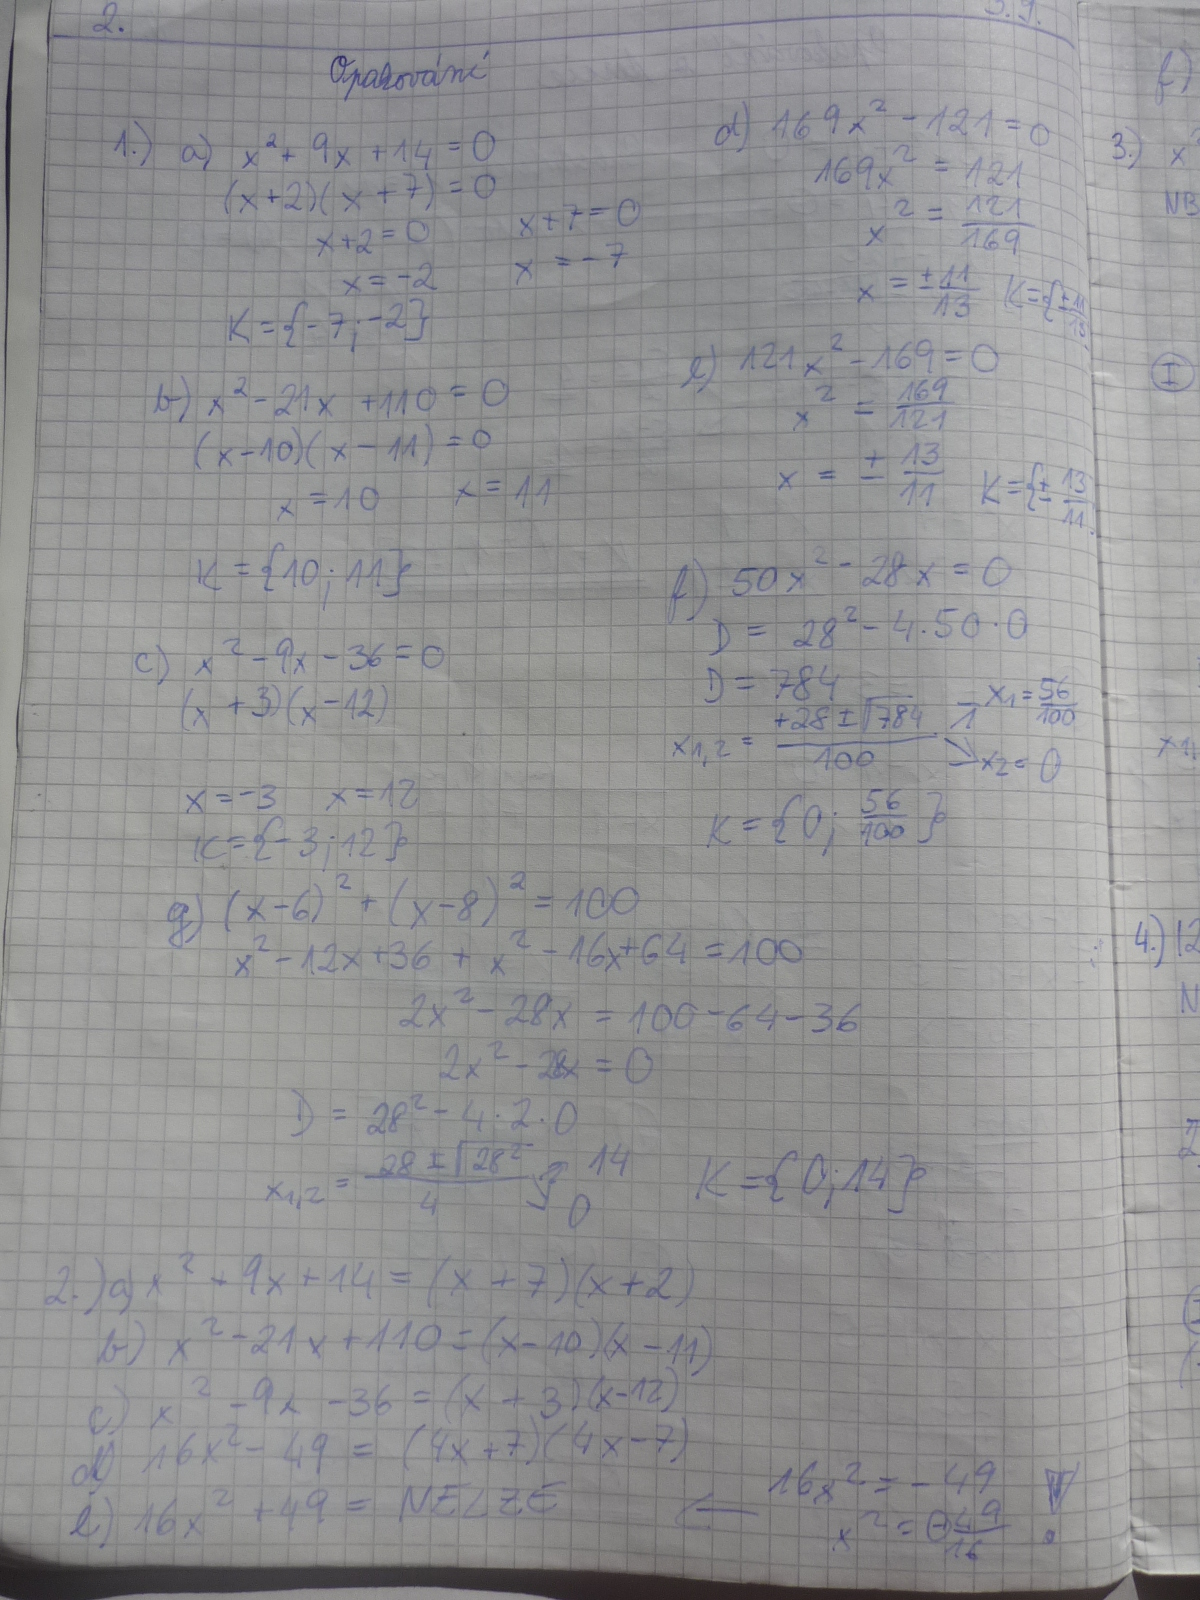 2.
5.9.
Opakování
1.) a) x² + 9x + 14 = 0
(x+2)(x+7) = 0
x+2 = 0    x+7 = 0
x = -2    x = -7
K = {-7; -2}
b) x² - 21x + 110 = 0
(x-10)(x-11) = 0
x = 10    x = 11
K = {10; 11}
c) x² - 9x - 36 = 0
(x+3)(x-12)
x = -3    x = 12
K = {-3; 12}
d) 169x² - 121 = 0
169x² = 121
x² = 121/169
x = ± 11/13    K = {± 11/13
e) 121x² - 169 = 0
x² = 169/121
x = ± 13/11    K = {± 13/11
f) 50x² - 28x = 0
D = 28² - 4·50·0
D = 784
x1,2 = (+28 ± √784)/100    x1 = 56/100
x2 = 0
K = {0; 56/100}
g) (x-6)² + (x-8)² = 100
x² - 12x + 36 + x² - 16x + 64 = 100
2x² - 28x = 100 - 64 - 36
2x² - 28x = 0
D = 28² - 4·2·0
x1,2 = (28 ± √28²)/4    14
0
K = {0; 14}
2.) a) x² + 9x + 14 = (x+7)(x+2)
b) x² - 21x + 110 = (x-10)(x-11)
c) x² - 9x - 36 = (x+3)(x-12)
d) 16x² - 49 = (4x+7)(4x-7)
e) 16x² + 49 = NELZE ← 16x² = -49
x² = ⊖ 49/16 !
f)
3.) x
NB
I
x1,
4.) 12
N